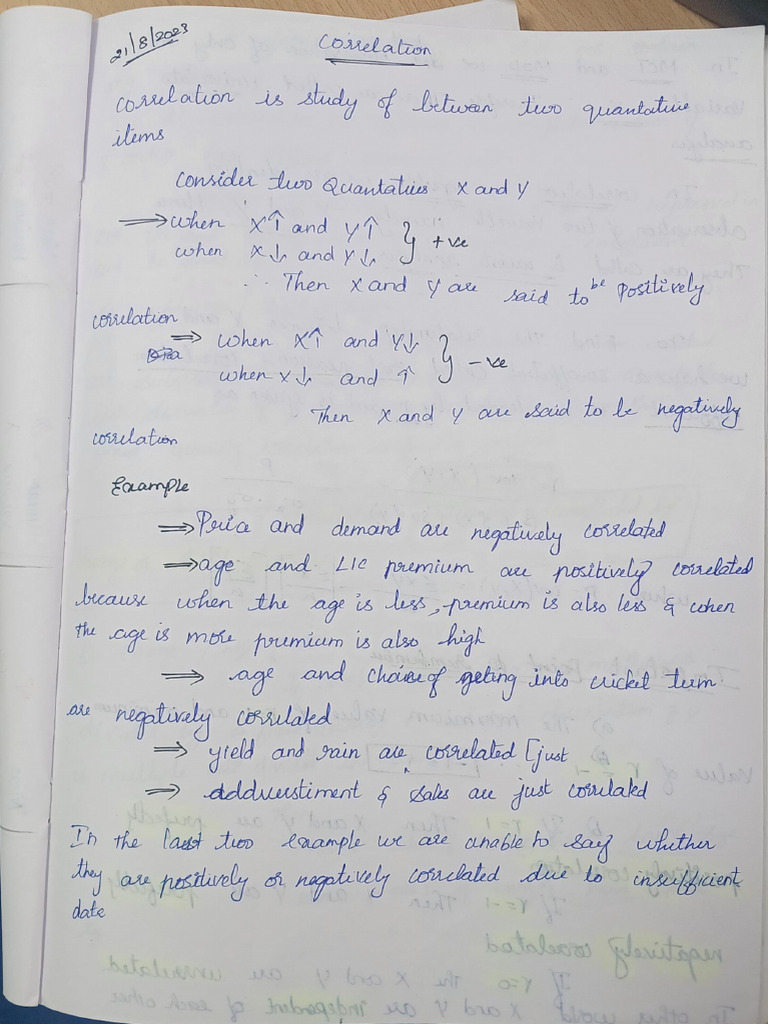 21/8/2023
Correlation
Correlation is study of between two quantative
items
Consider two Quantaties X and Y
⇒ when X↑ and Y↑ } +ve
when X↓ and Y↓
∴ Then X and Y are said to be positively
correlation
⇒ when X↑ and Y↓ } -ve
when X↓ and ↑
Then X and Y are said to be negatively
correlation
Example
⇒ Price and demand are negatively correlated
⇒ age and LIC premium are positively correlated
because when the age is less, premium is also less & when
the age is more premium is also high
⇒ age and choice of geting into cricket term
are negatively correlated
⇒ yield and rain are correlated [just
⇒ addverstiment & sales are just correlated
In the last two example we are unable to say whether
they are positively or negatively correlated due to insufficient
date